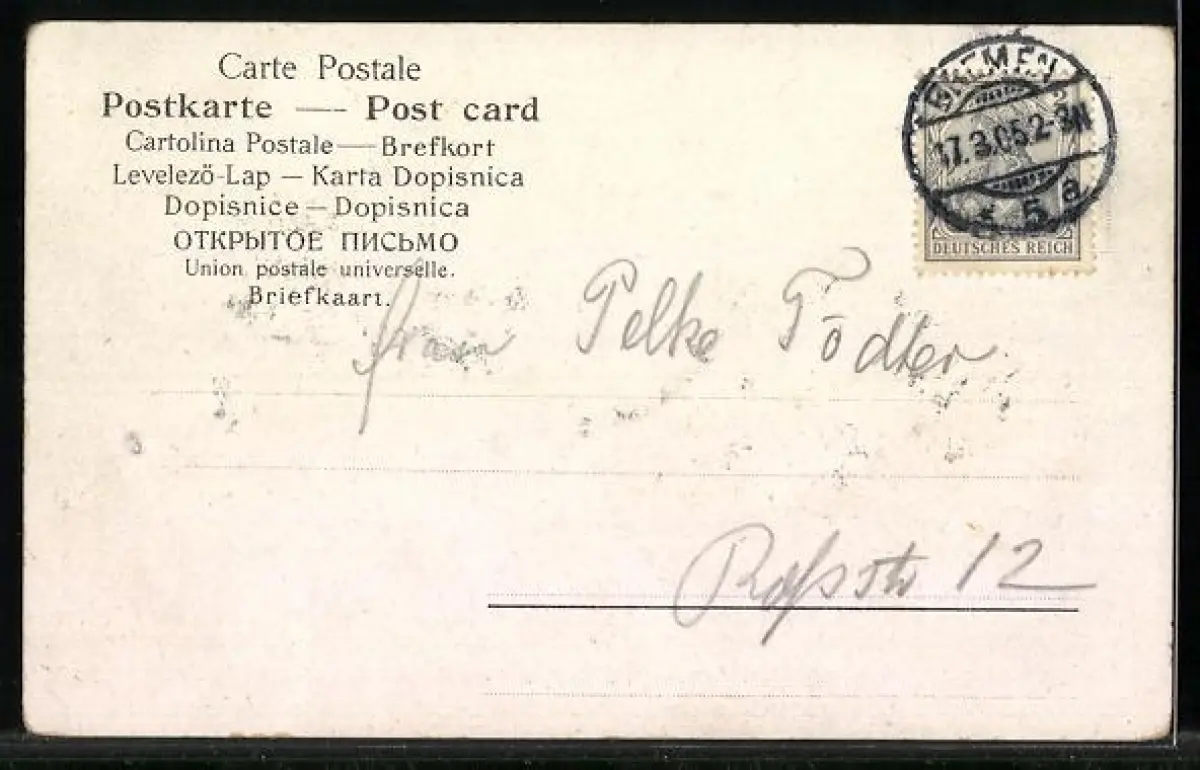 Carte Postale
Postkarte — Post card
Cartolina Postale — Brefkort
Levelező-Lap — Karta Dopisnica
Dopisnice — Dopisnica
ОТКРЫТОЕ ПИСЬМО
Union postale universelle.
Briefkaart.
BREMEN
17.3.05.2-3N
* 5 a
DEUTSCHES REICH
Frau Pelke Tödter
12